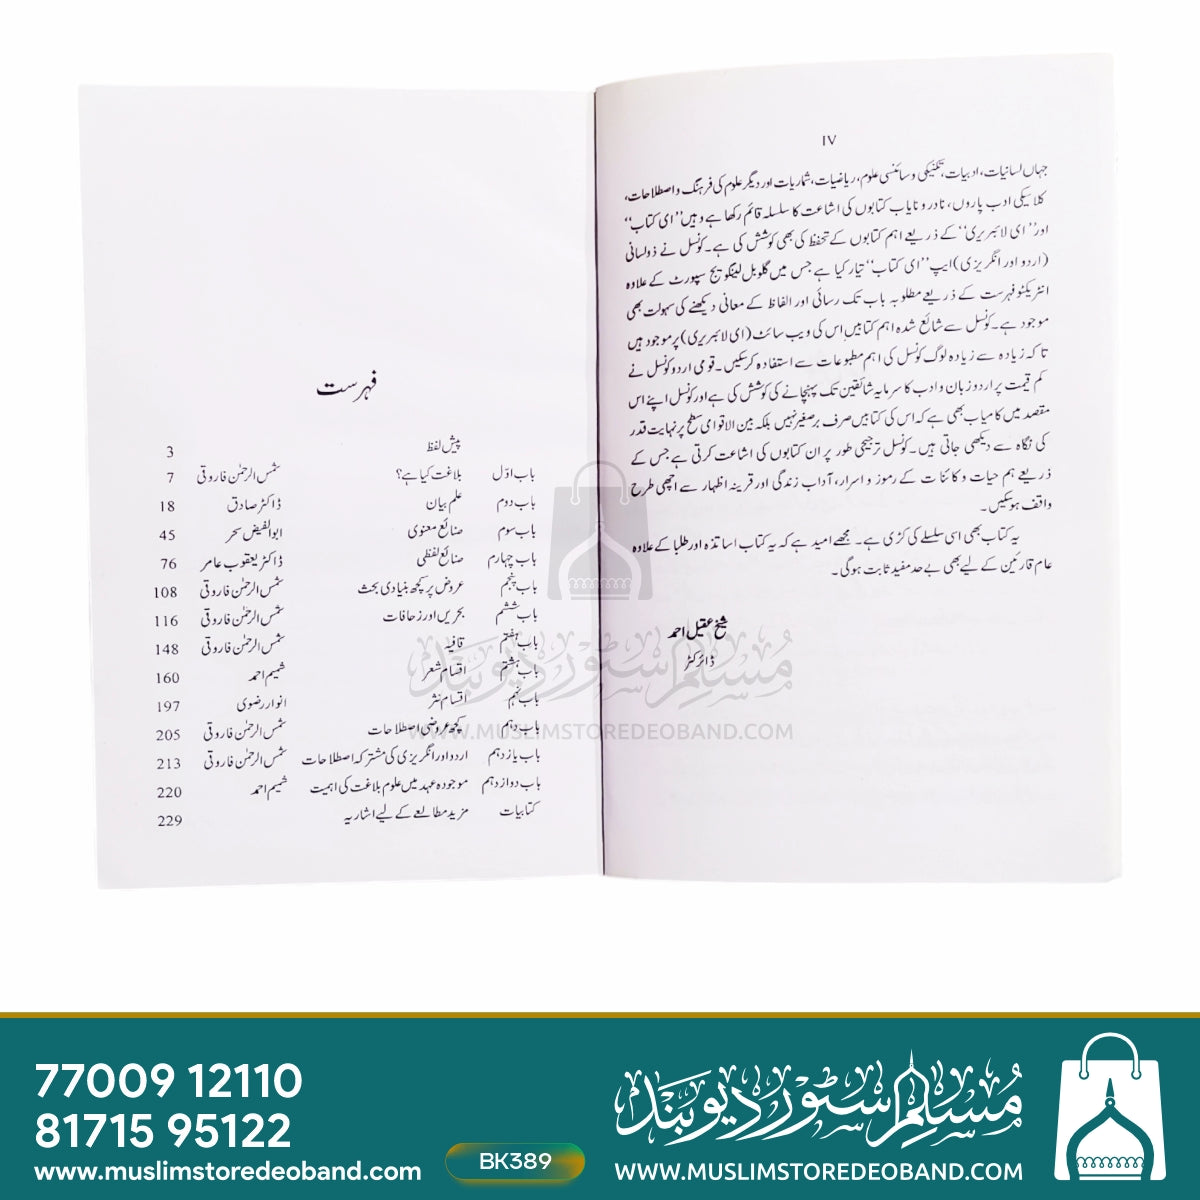 IV
جہاں لسانیات، ادبیات، تکنیکی و سائنسی علوم، ریاضیات، شماریات اور دیگر علوم کی فرہنگ و اصطلاحات،
کلاسیکی ادب پاروں، نادر و نایاب کتابوں کی اشاعت کا سلسلہ قائم رکھا ہے وہیں ”ای کتاب“
اور ”ای لائبریری“ کے ذریعے اہم کتابوں کے تحفظ کی بھی کوشش کی ہے۔ کونسل نے ذولسانی
(اردو اور انگریزی) ایپ ”ای کتاب“ تیار کیا ہے جس میں گلوبل لینگویج سپورٹ کے علاوہ
انٹریکٹو فہرست کے ذریعے مطلوبہ باب تک رسائی اور الفاظ کے معانی دیکھنے کی سہولت بھی
موجود ہے۔ کونسل سے شائع شدہ اہم کتابیں اس کی ویب سائٹ (ای لائبریری) پر موجود ہیں
تاکہ زیادہ سے زیادہ لوگ کونسل کی اہم مطبوعات سے استفادہ کرسکیں۔ قومی اردو کونسل نے
کم قیمت پر اردو زبان و ادب کا سرمایہ شائقین تک پہنچانے کی کوشش کی ہے اور کونسل اپنے اس
مقصد میں کامیاب بھی ہے کہ اس کی کتابیں صرف برصغیر نہیں بلکہ بین الاقوامی سطح پر نہایت قدر
کی نگاہ سے دیکھی جاتی ہیں۔ کونسل ترجیحی طور پر ان کتابوں کی اشاعت کرتی ہے جس کے
ذریعے ہم حیات و کائنات کے رموز و اسرار، آداب زندگی اور قرینۂ اظہار سے اچھی طرح
واقف ہوسکیں۔
یہ کتاب بھی اسی سلسلے کی کڑی ہے۔ مجھے امید ہے کہ یہ کتاب اساتذہ اور طلبا کے علاوہ
عام قارئین کے لیے بھی بے حد مفید ثابت ہوگی۔
شیخ عقیل احمد
ڈائرکٹر
فہرست
پیش لفظ 3
باب اوّل بلاغت کیا ہے؟ شمس الرحمٰن فاروقی 7
باب دوم علم بیان ڈاکٹر صادق 18
باب سوم صنائع معنوی ابوالفیض سحر 45
باب چہارم صنائع لفظی ڈاکٹر یعقوب عامر 76
باب پنجم عروض پر کچھ بنیادی بحث شمس الرحمٰن فاروقی 108
باب ششم بحریں اور زحافات شمس الرحمٰن فاروقی 116
باب ہفتم قافیہ شمس الرحمٰن فاروقی 148
باب ہشتم اقسام شعر شمیم احمد 160
باب نہم اقسام نثر انوار رضوی 197
باب دہم کچھ عروضی اصطلاحات شمس الرحمٰن فاروقی 205
باب یازدہم اردو اور انگریزی کی مشترکہ اصطلاحات شمس الرحمٰن فاروقی 213
باب دوازدہم موجودہ عہد میں علوم بلاغت کی اہمیت شمیم احمد 220
کتابیات مزید مطالعے کے لیے اشاریہ 229
مسلم سٹور دیوبند
WWW.MUSLIMSTOREDEOBAND.COM
77009 12110
81715 95122
www.muslimstoredeoband.com
BK389
مسلم سٹور دیوبند
WWW.MUSLIMSTOREDEOBAND.COM